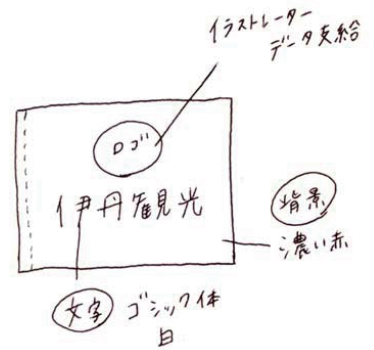 イラストレーター
データ支給
ロゴ
伊丹観光
背景
濃い赤
文字 ゴシック体
白